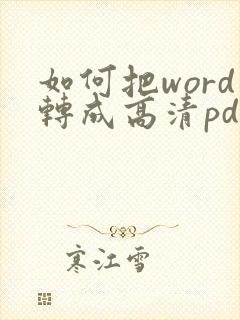 如何把word
轉成高清pd
寒江雪